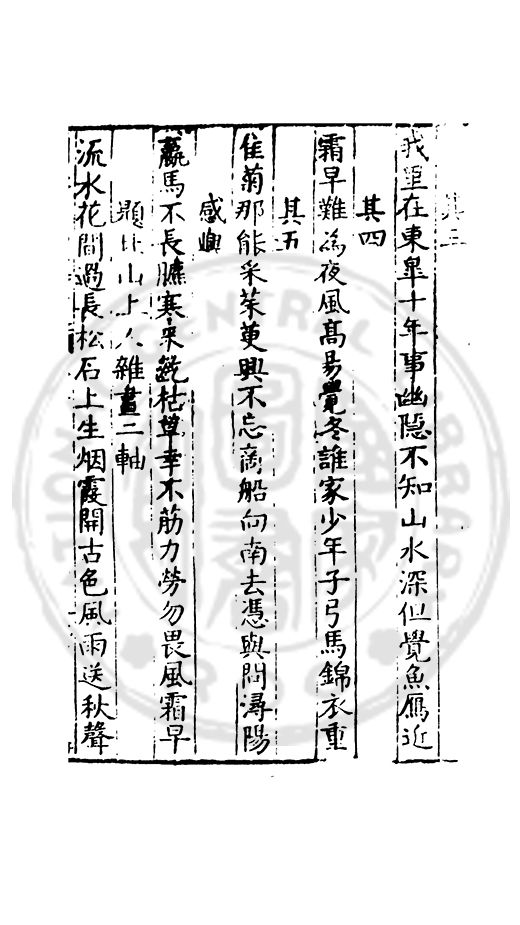 其三
我里在東皐十年事幽隱不知山水深但覺魚鴈近
其四
霜早難為夜風髙易覺冬誰家少年子弓馬錦衣重
其五
佳菊那能采茱萸興不忘商船向南去憑與問潯陽
感興
羸馬不長膘寒來齕枯草幸不筋力勞勿畏風霜早
題山上人雜畫二軸
流水花間過長松石上生烟霞開古色風雨送秋聲
NATIONAL CENTRAL LIBRARY